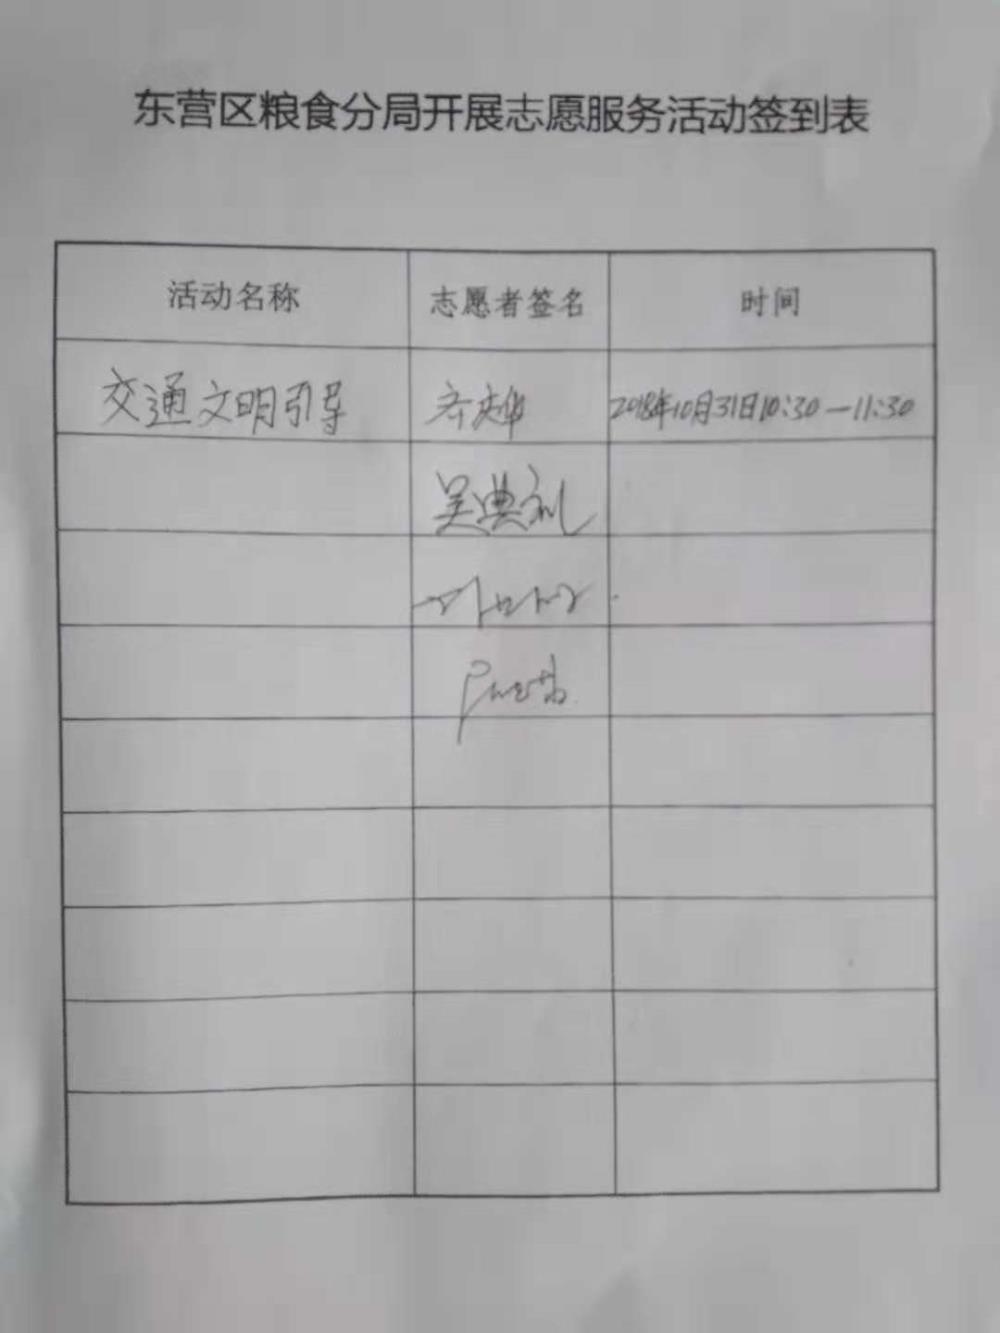 东营区粮食分局开展志愿服务活动签到表
活动名称 志愿者签名 时间
交通文明引导 2018年10月31日10:30—11:30
吴典礼